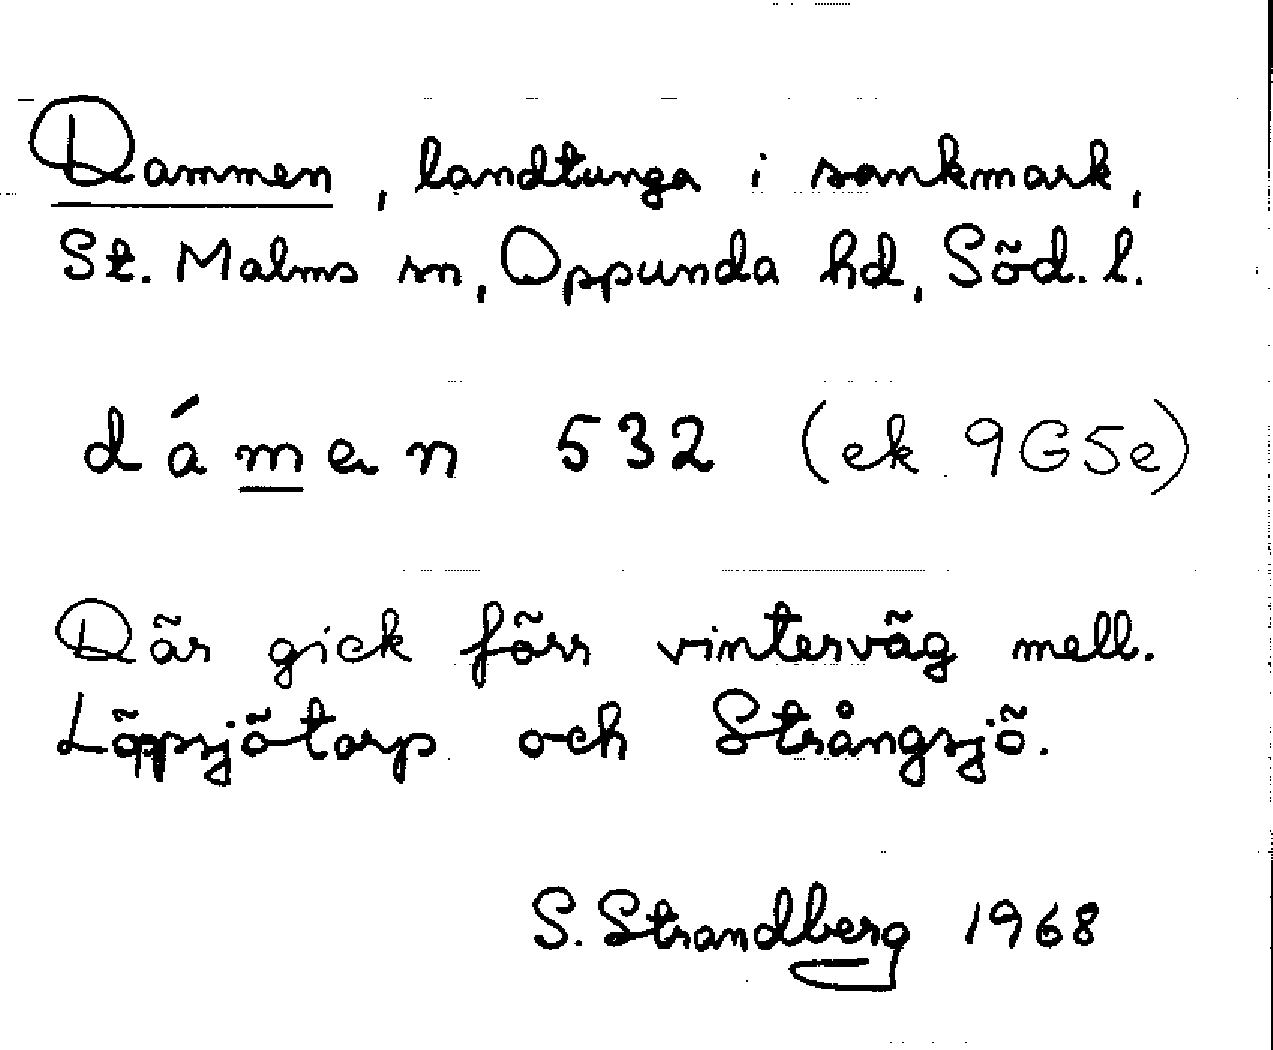 Dammen, landtunga i sankmark,
St. Malms sn, Oppunda hd, Söd. l.
dámen 532 (ek 9G5e)
Där gick förr vinterväg mell.
Löppsjötorp och Strångsjö.
S. Strandberg 1968